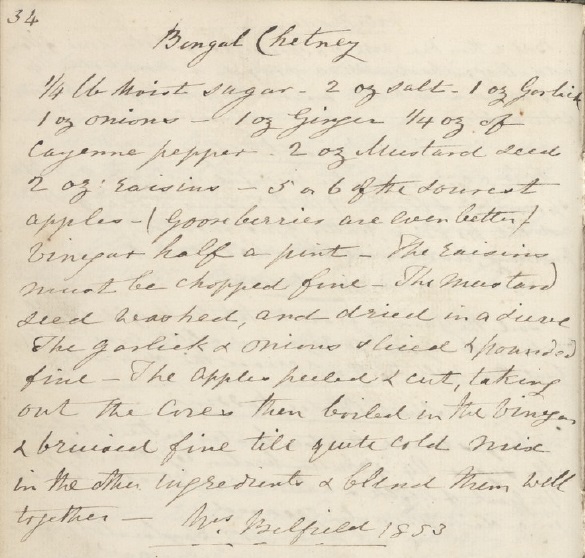 34
Bengal Chetney
1/4 lb Moist sugar - 2 oz salt - 1 oz Garlick
1 oz onions - 1 oz Ginger 1/4 oz of
Cayenne pepper - 2 oz Mustard seed
2 oz raisins - 5 or 6 of the sourest
apples - ( Gooseberries are even better )
Vinegar half a pint - The raisins
must be chopped fine - The Mustard
seed washed, and dried in a sieve
The garlick & onions sliced & pounded
fine - The apples peeled & cut, taking
out the Cores then boiled in the Vinegar
& bruised fine till quite cold mix
in the other ingredients & blend them well
together - Mrs Belfield 1853